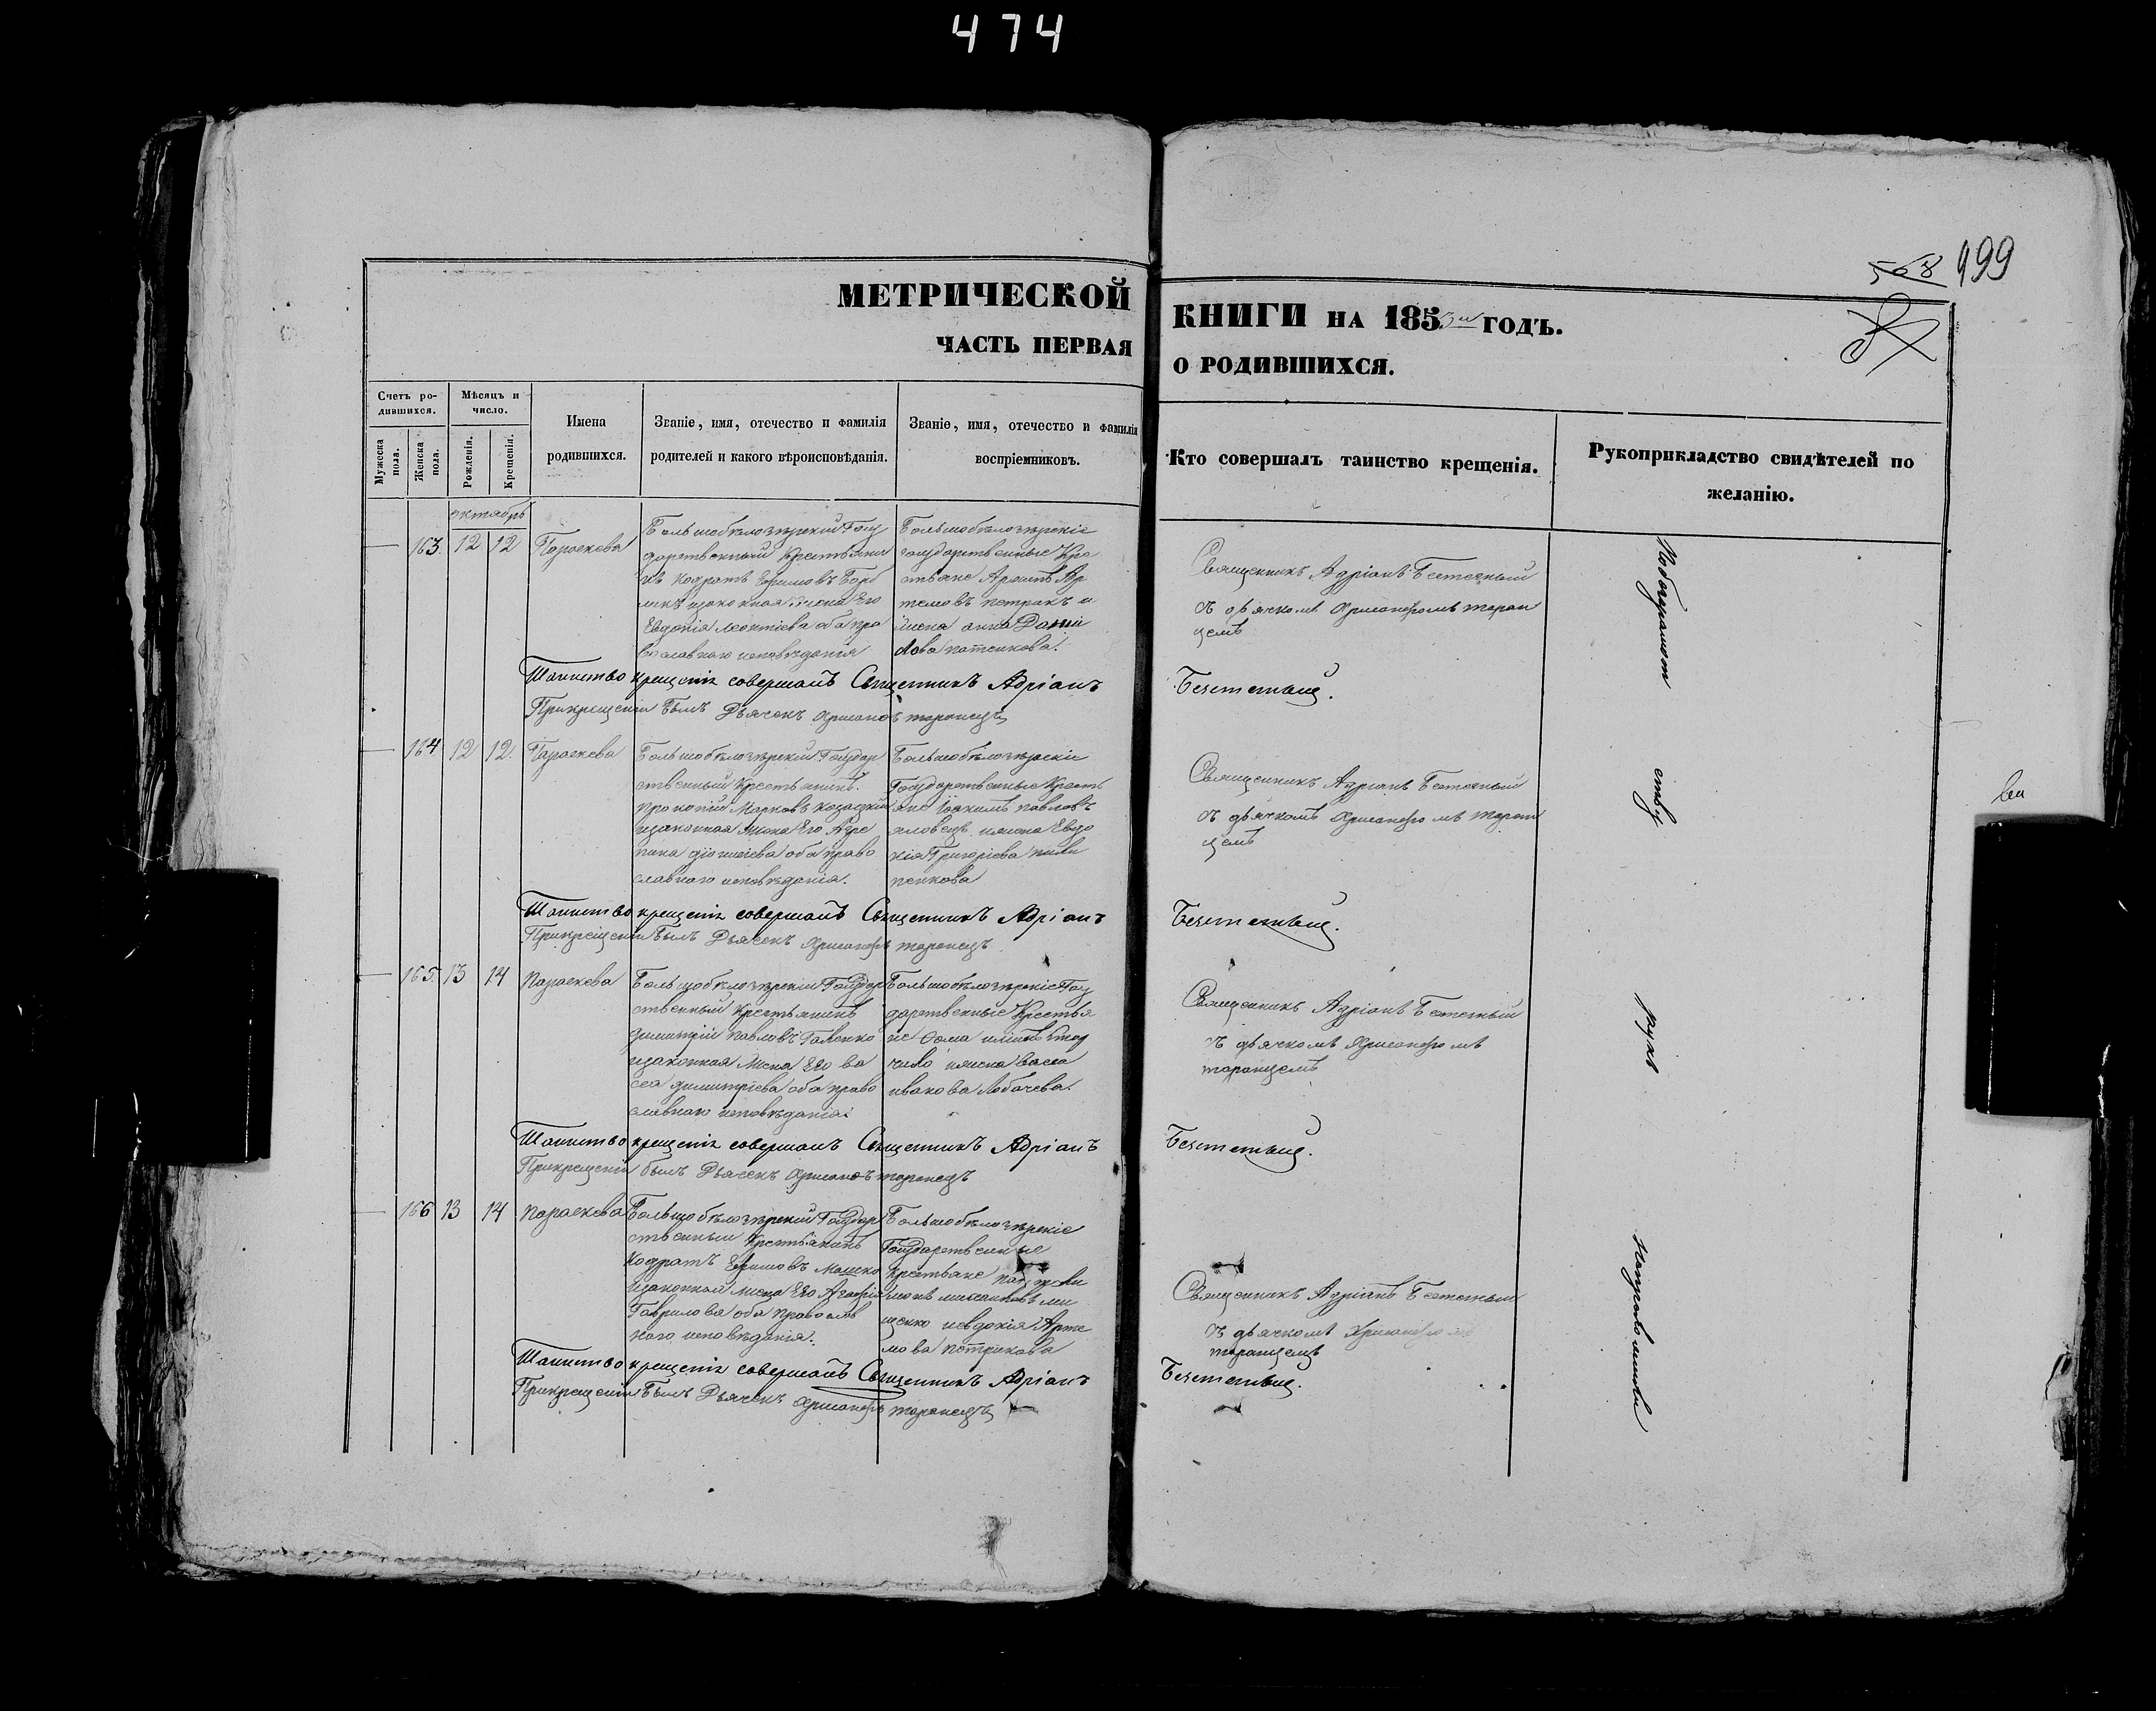 474
568 499
МЕТРИЧЕСКОЙ КНИГИ НА 1853й ГОДЪ.
ЧАСТЬ ПЕРВАЯ О РОДИВШИХСЯ.
Счетъ родившихся.
Мужеска пола.
Женска пола.
Мѣсяцъ и число.
Рожденія.
Крещенія.
Имена
родившихся.
Званіе, имя, отечество и фамилія
родителей и какого вѣроисповѣданія.
Званіе, имя, отечество и фамилія
воспріемниковъ.
Кто совершалъ таинство крещенія.
Рукоприкладство свидѣтелей по
желанію.
октябрь
163. 12 12 Параскева
Большобѣлозѣрскій Госу
дарственный Крестьяни
нъ Кодратъ Ефимовъ
изаконная жена Его
Евдокія Леонтіева оба пра
вославнаго исповѣданія
Большобѣлозѣрскіе
государственные Кре
стьяне Ар
темовъ петрикъ и
жена анна Дани
лова
Священникъ Адріанъ Безстечный
съ дьячкомъ Хрисанфомъ таран
цемъ
Таинство крещенія совершалъ Священникъ Адріанъ Безстечный.
При крещеніи былъ Дьячекъ Хрисанфъ таранецъ
164 12 12. Параскева
Большобѣлозѣрскій Государ
ственный Крестьянинъ
прокопій Марковъ Козацкій
изаконная жена Его Агре
пина діонисіева оба право
славнаго исповѣданія.
Большобѣлозѣрскіе
Государственные Кресть
яне Іоакимъ павловъ
ижена Евдо
кія Григоріева пили
пенкова
Священникъ Адріанъ Безстечный
съ дьячкомъ Хрисанфомъ таран
цемъ
Таинство крещенія совершалъ Священникъ Адріанъ Безстечный.
При крещеніи былъ Дьячекъ Хрисанфъ таранецъ
165. 13 14 Параскева
Большобѣлозѣрскій Государ
ственный Крестьянинъ
димитрій павловъ Галенко
изаконная жена Его ва
сса димитріева оба право
славнаго исповѣданія.
Большобѣлозѣрскіе Госу
дарственные Крестья
не Ѳома
чило ижена васса
иванова Лобачева.
Священникъ Адріанъ Безстечный
съ дьячкомъ Хрисанфомъ
таранцемъ
Таинство крещенія совершалъ Священникъ Адріанъ Безстечный.
При крещеніи былъ Дьячекъ Хрисанфъ таранецъ
166 13 14 параскева
Большобѣлозѣрскій Государ
ственный Крестьянинъ
Кодратъ Ефимовъ Машко
изаконная жена Его Агафія
Гаврилова оба Православ
наго исповѣданія.
Большобѣлозѣрскіе
Государственные
крестьяне
ми
щенко иевдокія Арте
мова петрикова
Священникъ Адріанъ Безстечный
съ дьячкомъ Хрисанфомъ
таранцемъ
Таинство крещенія совершалъ Священникъ Адріанъ Безстечный.
При крещеніи былъ Дьячекъ Хрисанфъ таранецъ
Побезграмот
ству
рукъ
неприложили